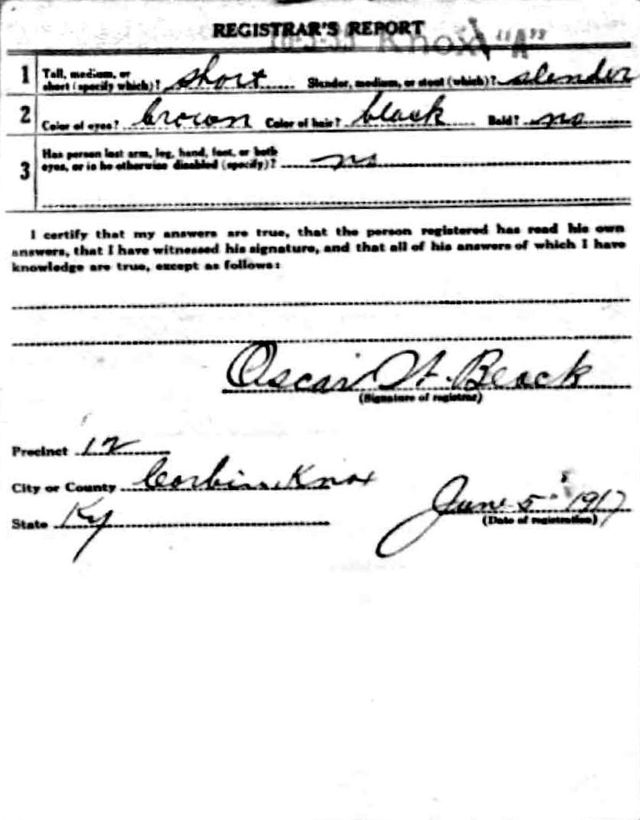 REGISTRAR'S REPORT
Knox "A"
1 Tall, medium, or short (specify which)? short Slender, medium, or stout (which)? slender
2 Color of eyes? brown Color of hair? black Bald? no
3 Has person lost arm, leg, hand, foot, or both eyes, or is he otherwise disabled (specify)? no
I certify that my answers are true, that the person registered has read his own
answers, that I have witnessed his signature, and that all of his answers of which I have
knowledge are true, except as follows:
Oscar
(Signature of registrar)
Precinct 12
City or County Corbin, Knox
State Ky
June 5" 1917
(Date of registration)